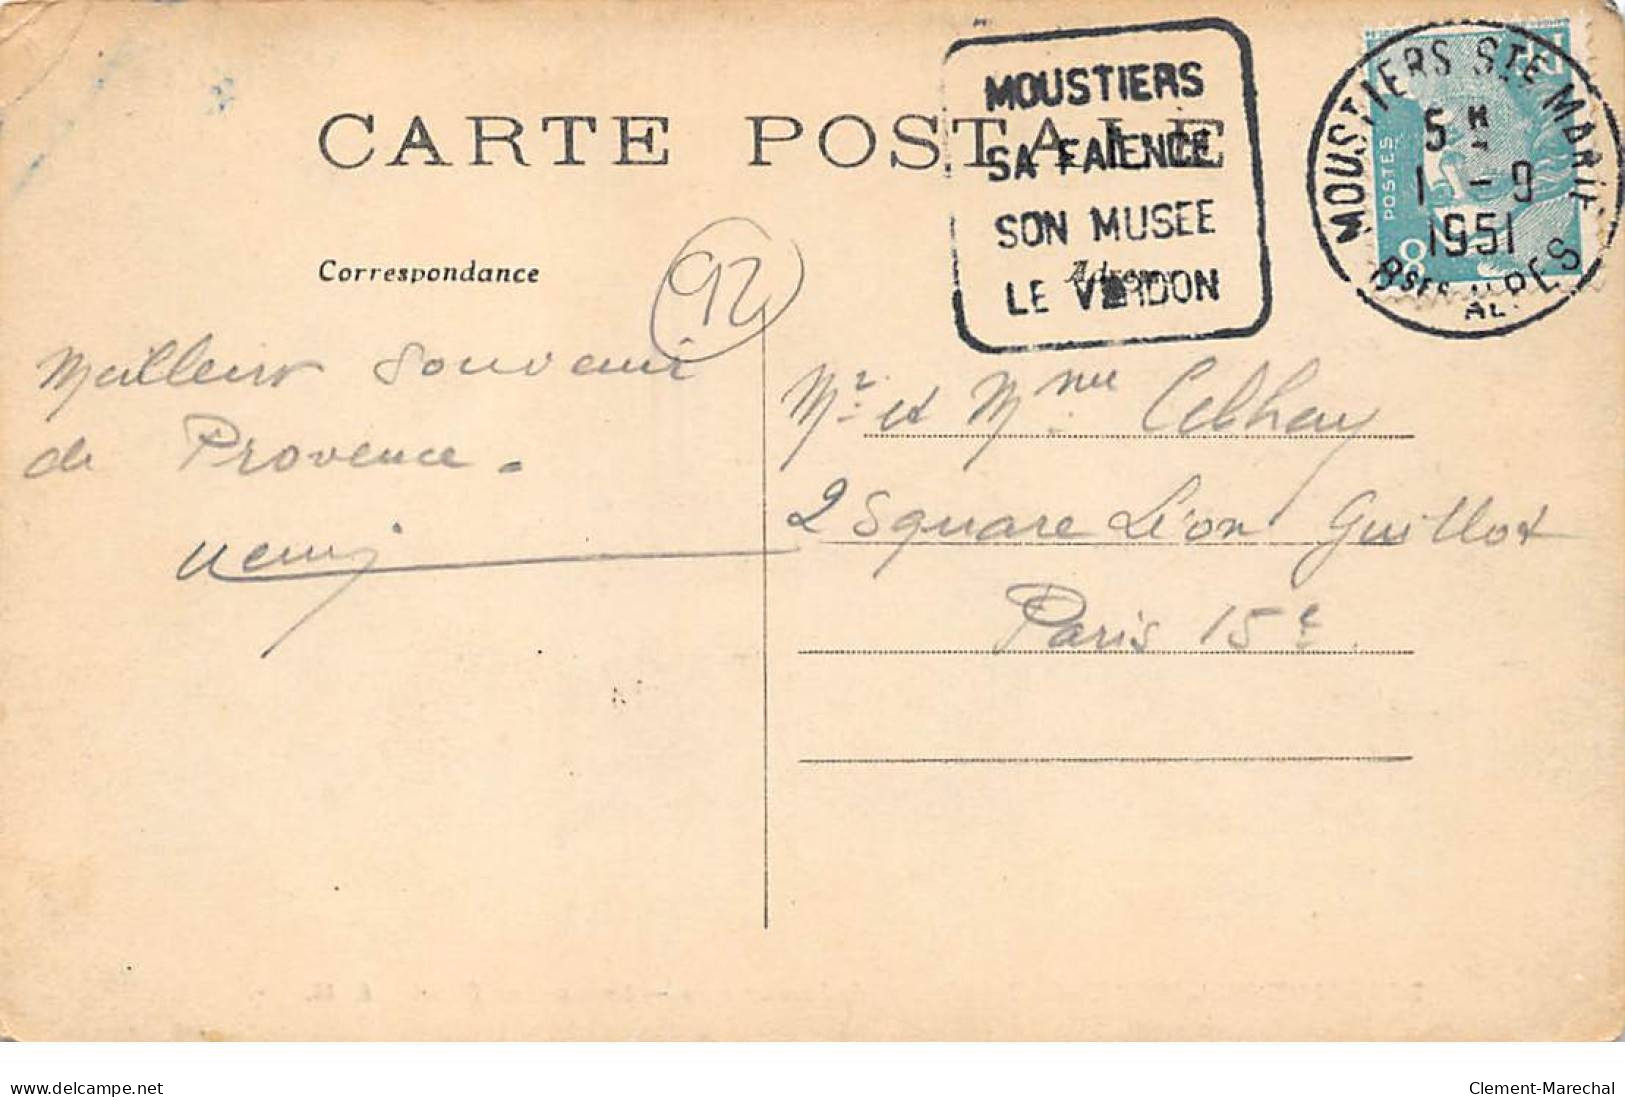 MOUSTIERS
SA FAIENCE
SON MUSEE
LE VERDON
MOUSTIERS STE MARIE
5 H
1 - 9
1951
BSES ALPES
POSTES
8F
CARTE POSTALE
Correspondance
Adresse
92
Meilleur souvenir
de Provence.
Mr. et Mme
2 Square Léon Guillot
Paris 15e.
delcampe.net
Clement-Marechal